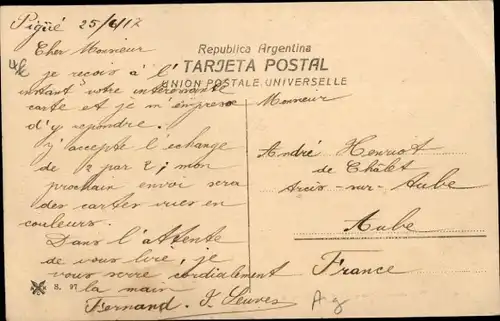 Pigüé 25/6/12
Republica Argentina
TARJETA POSTAL
UNION POSTALE UNIVERSELLE
Cher Monsieur
je recois à l'
instant votre intéressante
carte et je m'empresse
d'y repondre.
J'accepte l'échange
de 2 par 2; mon
prochain envoi sera
des cartes vues en
couleurs.
Dans l'attente
de vous lire, je
vous serre cordialement
la main
Fernand
S. 97
Monsieur
André Henriot
de Châlet
Arcis-sur-Aube
Aube
France